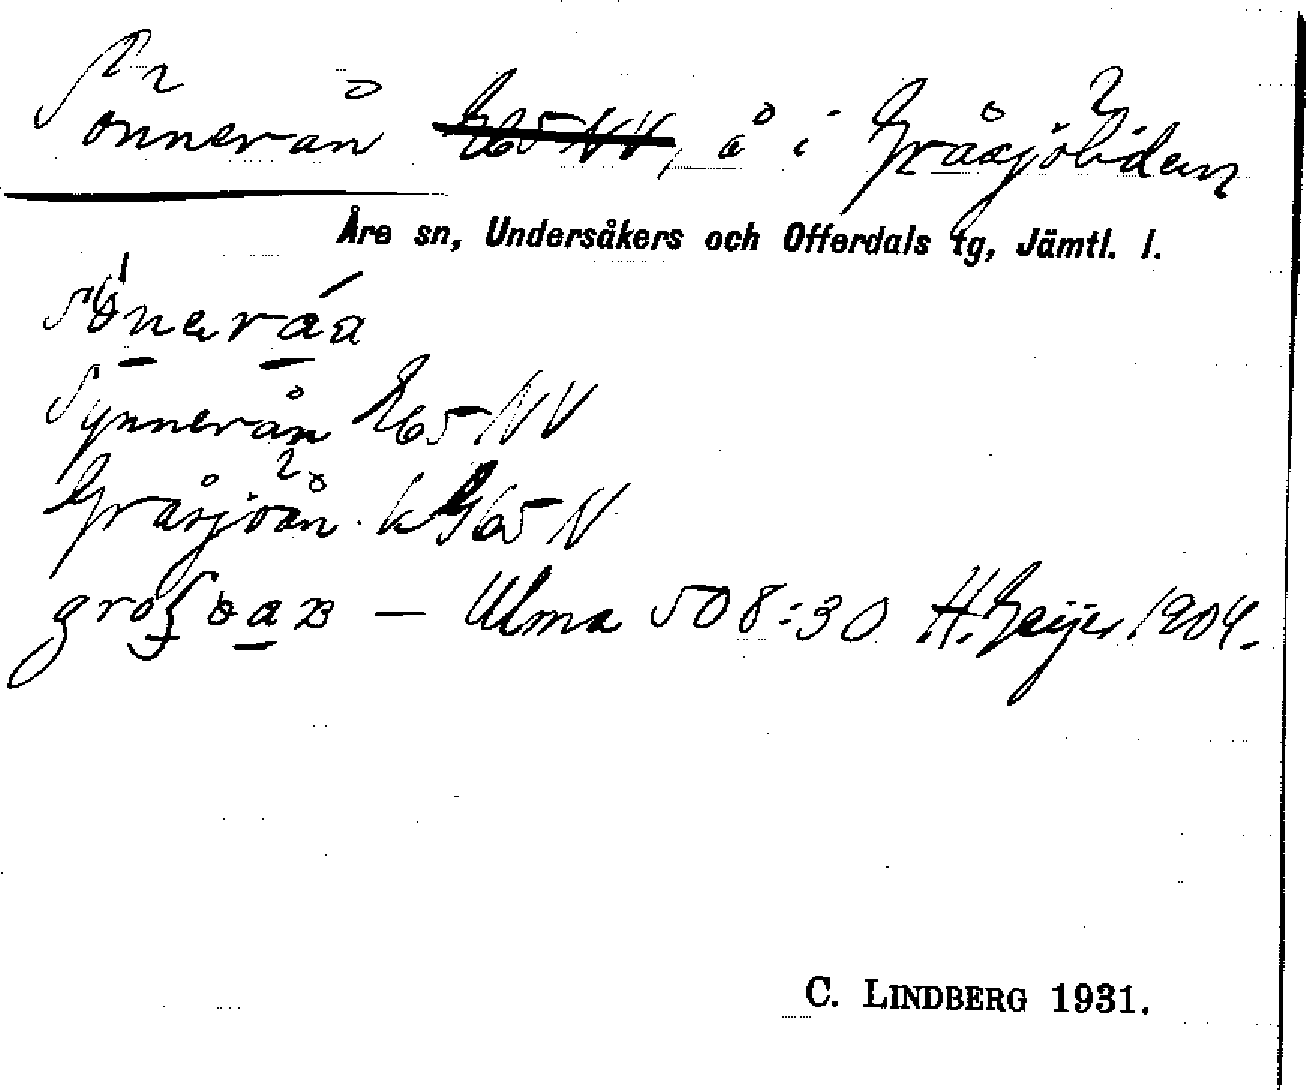 Sönnerån E65 NV, å i Gråsjöliden
Åre sn, Undersåkers och Offerdals tg, Jämtl. l.
Synnerån E65 NV
Gråsjöån k E65 N
— Ulma 508:30 H. Geijer 1904.
C. LINDBERG 1931.